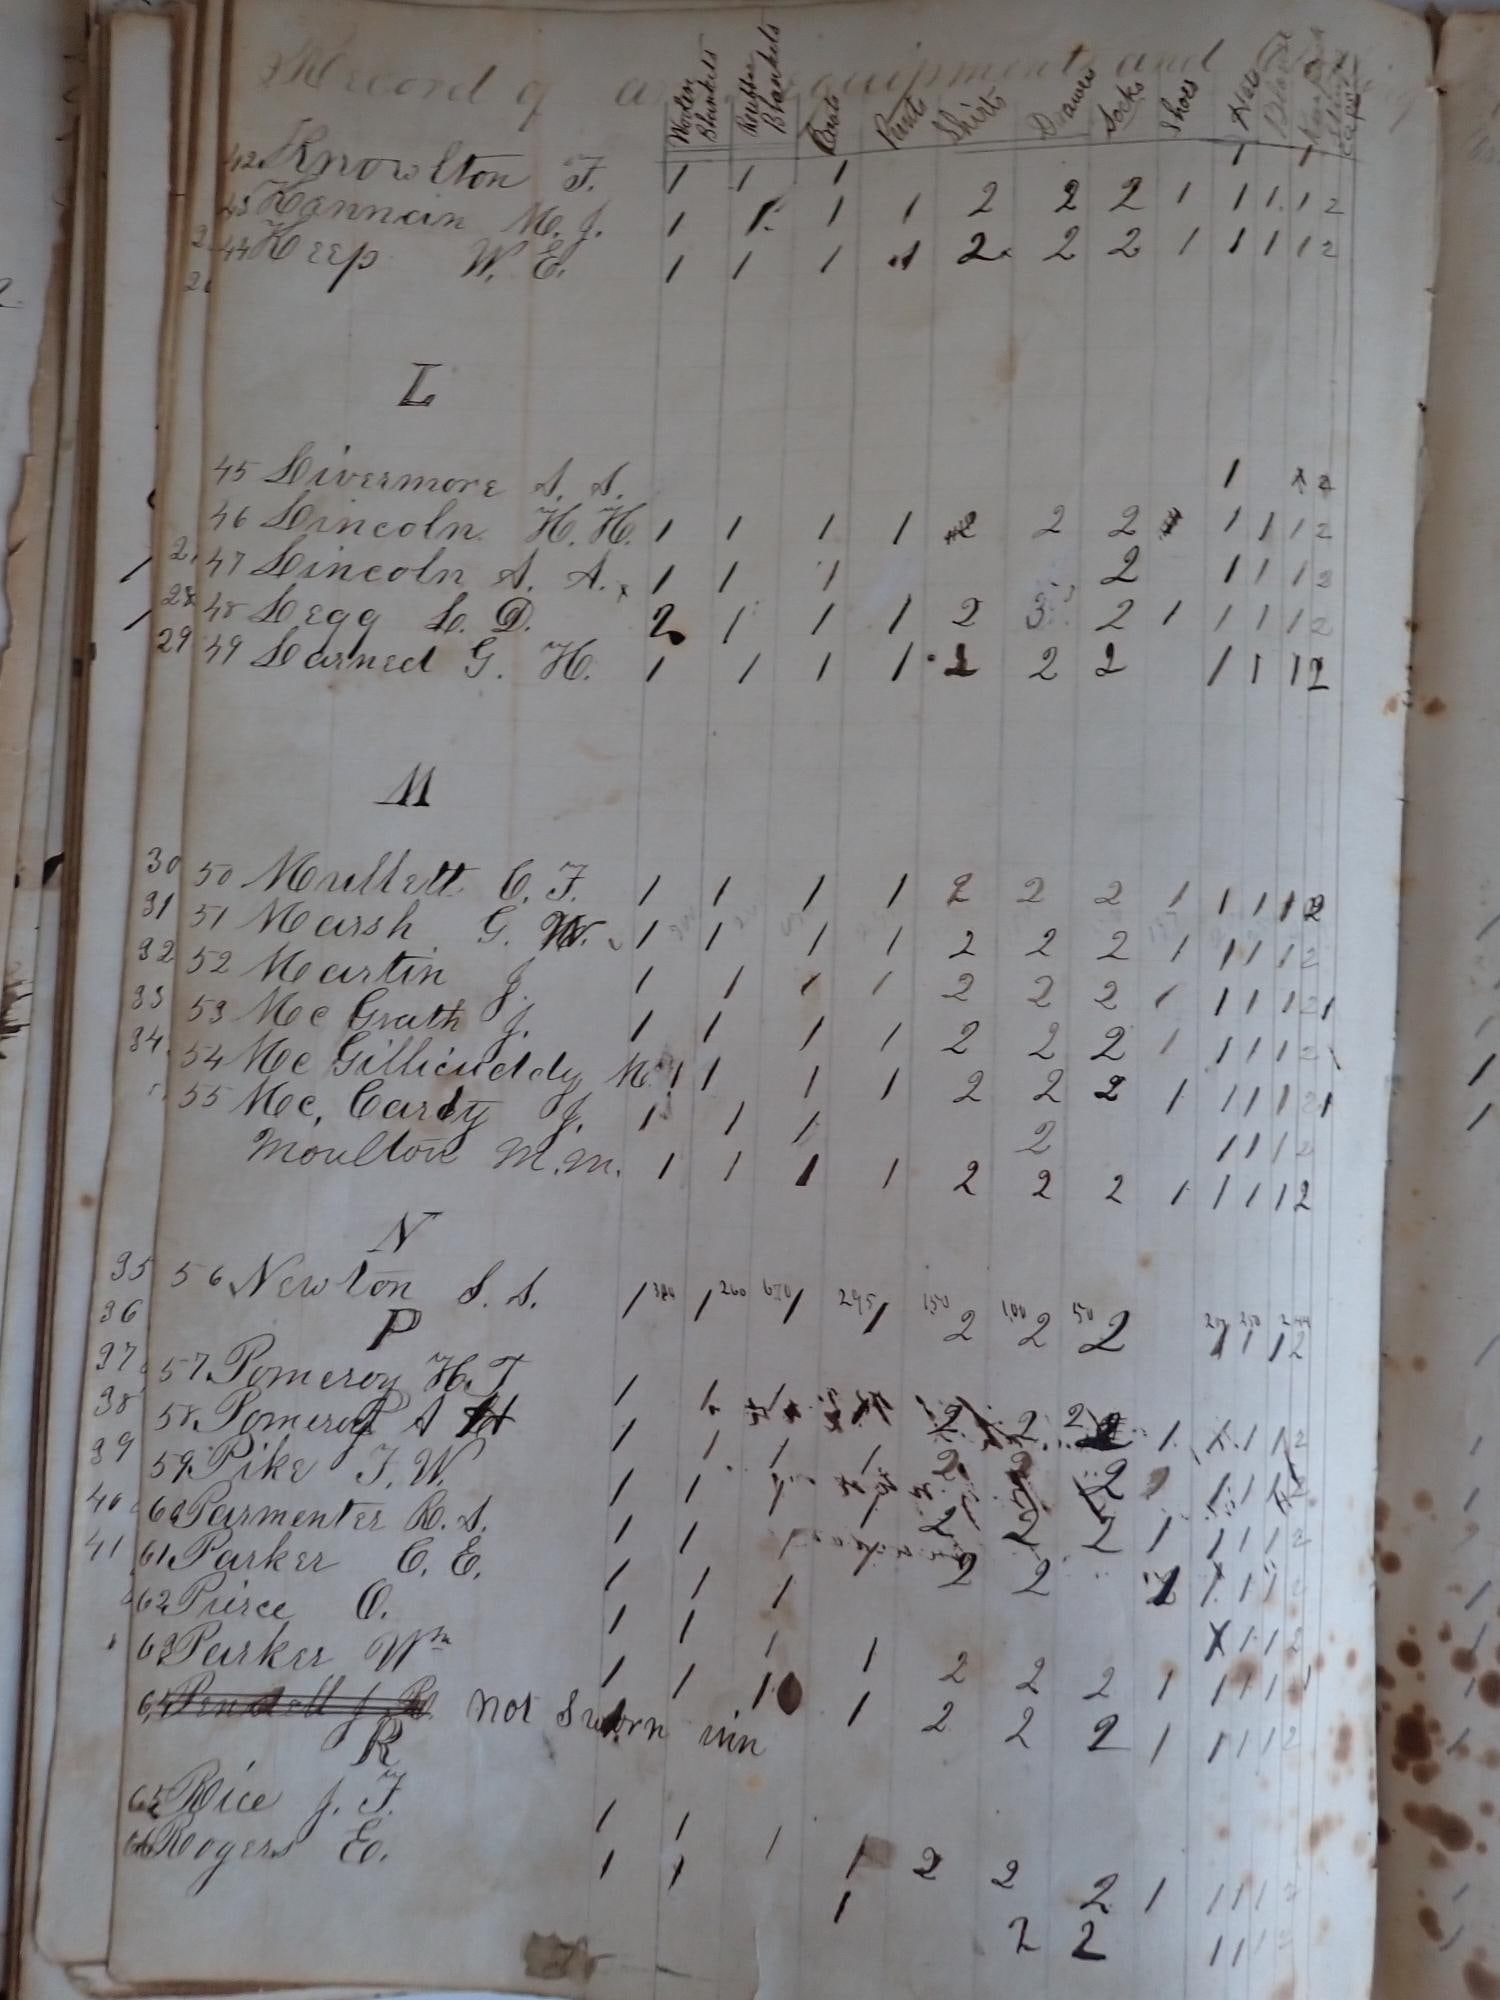 Record of equipments and
Woolen Blankets Rubber Blankets Coats Pants Shirts Drawers Socks Shoes Hats Blouse
42 Knowlton F. 1 1 1 1 1
43 Kannain M. J. 1 1 1 1 2 2 2 1 1 1 1 2
44 Keep W. E. 1 1 1 1 2 2 2 1 1 1 1 2
L
45 Livermore S. S. 1 2
46 Lincoln H. H. 1 1 1 1 2 2 2 1 1 1 2
47 Lincoln A. A. 1 1 1 2 1 1 1 2
28 48 Legg L. D. 2 1 1 1 2 3 2 1 1 1 1 2
29 49 Larned G. H. 1 1 1 1 2 2 2 1 1 1 2
M
30 50 Mullett C. F. 1 1 1 1 2 2 2 1 1 1 1 2
31 51 Marsh G. W. 1 1 1 1 2 2 2 1 1 1 1 2
32 52 Martin J 1 1 1 1 2 2 2 1 1 1 1 2 1
33 53 Mc Grath J. 1 1 1 1 2 2 2 1 1 1 1 2
34 54 Mc Gillicuddy M 1 1 1 1 2 2 2 1 1 1 1 2 1
55 Mc, Carty J. 1 1 1 2 1 1 1 2
Moulton M. M. 1 1 1 1 2 2 2 1 1 1 1 2
N
35 56 Newton S. S. 1 1 260 1 295 1 150 2 100 2 50 2 1 250 1 1 2
36
P
37 57 Pomeroy H. T 1 1 2 2 2 1 1 1 2
38 58 Pomeroy A 1 1 1 1 2 2 2 1 1 1
39 59 Pike F. W. 1 1 2 2 2 1 1 1 1 2
40 60 Parmenter R. S. 1 1 1 2 2 1 1
41 61 Parker C. E. 1 1 1 1 1 2
62 Pierce O. 1 1 1 1 2 2 2 1 1 1 1 1
63 Parker Wm 1 1 1 1 2 2 2 1 1 1 1 2
64 Pendell J. not Sworn inn
R
65 Rice J. F. 1 1 1 1 2 2 2 1 1 1 1 2
66 Rogers E. 1 1 1 2 2 1 1 1 2